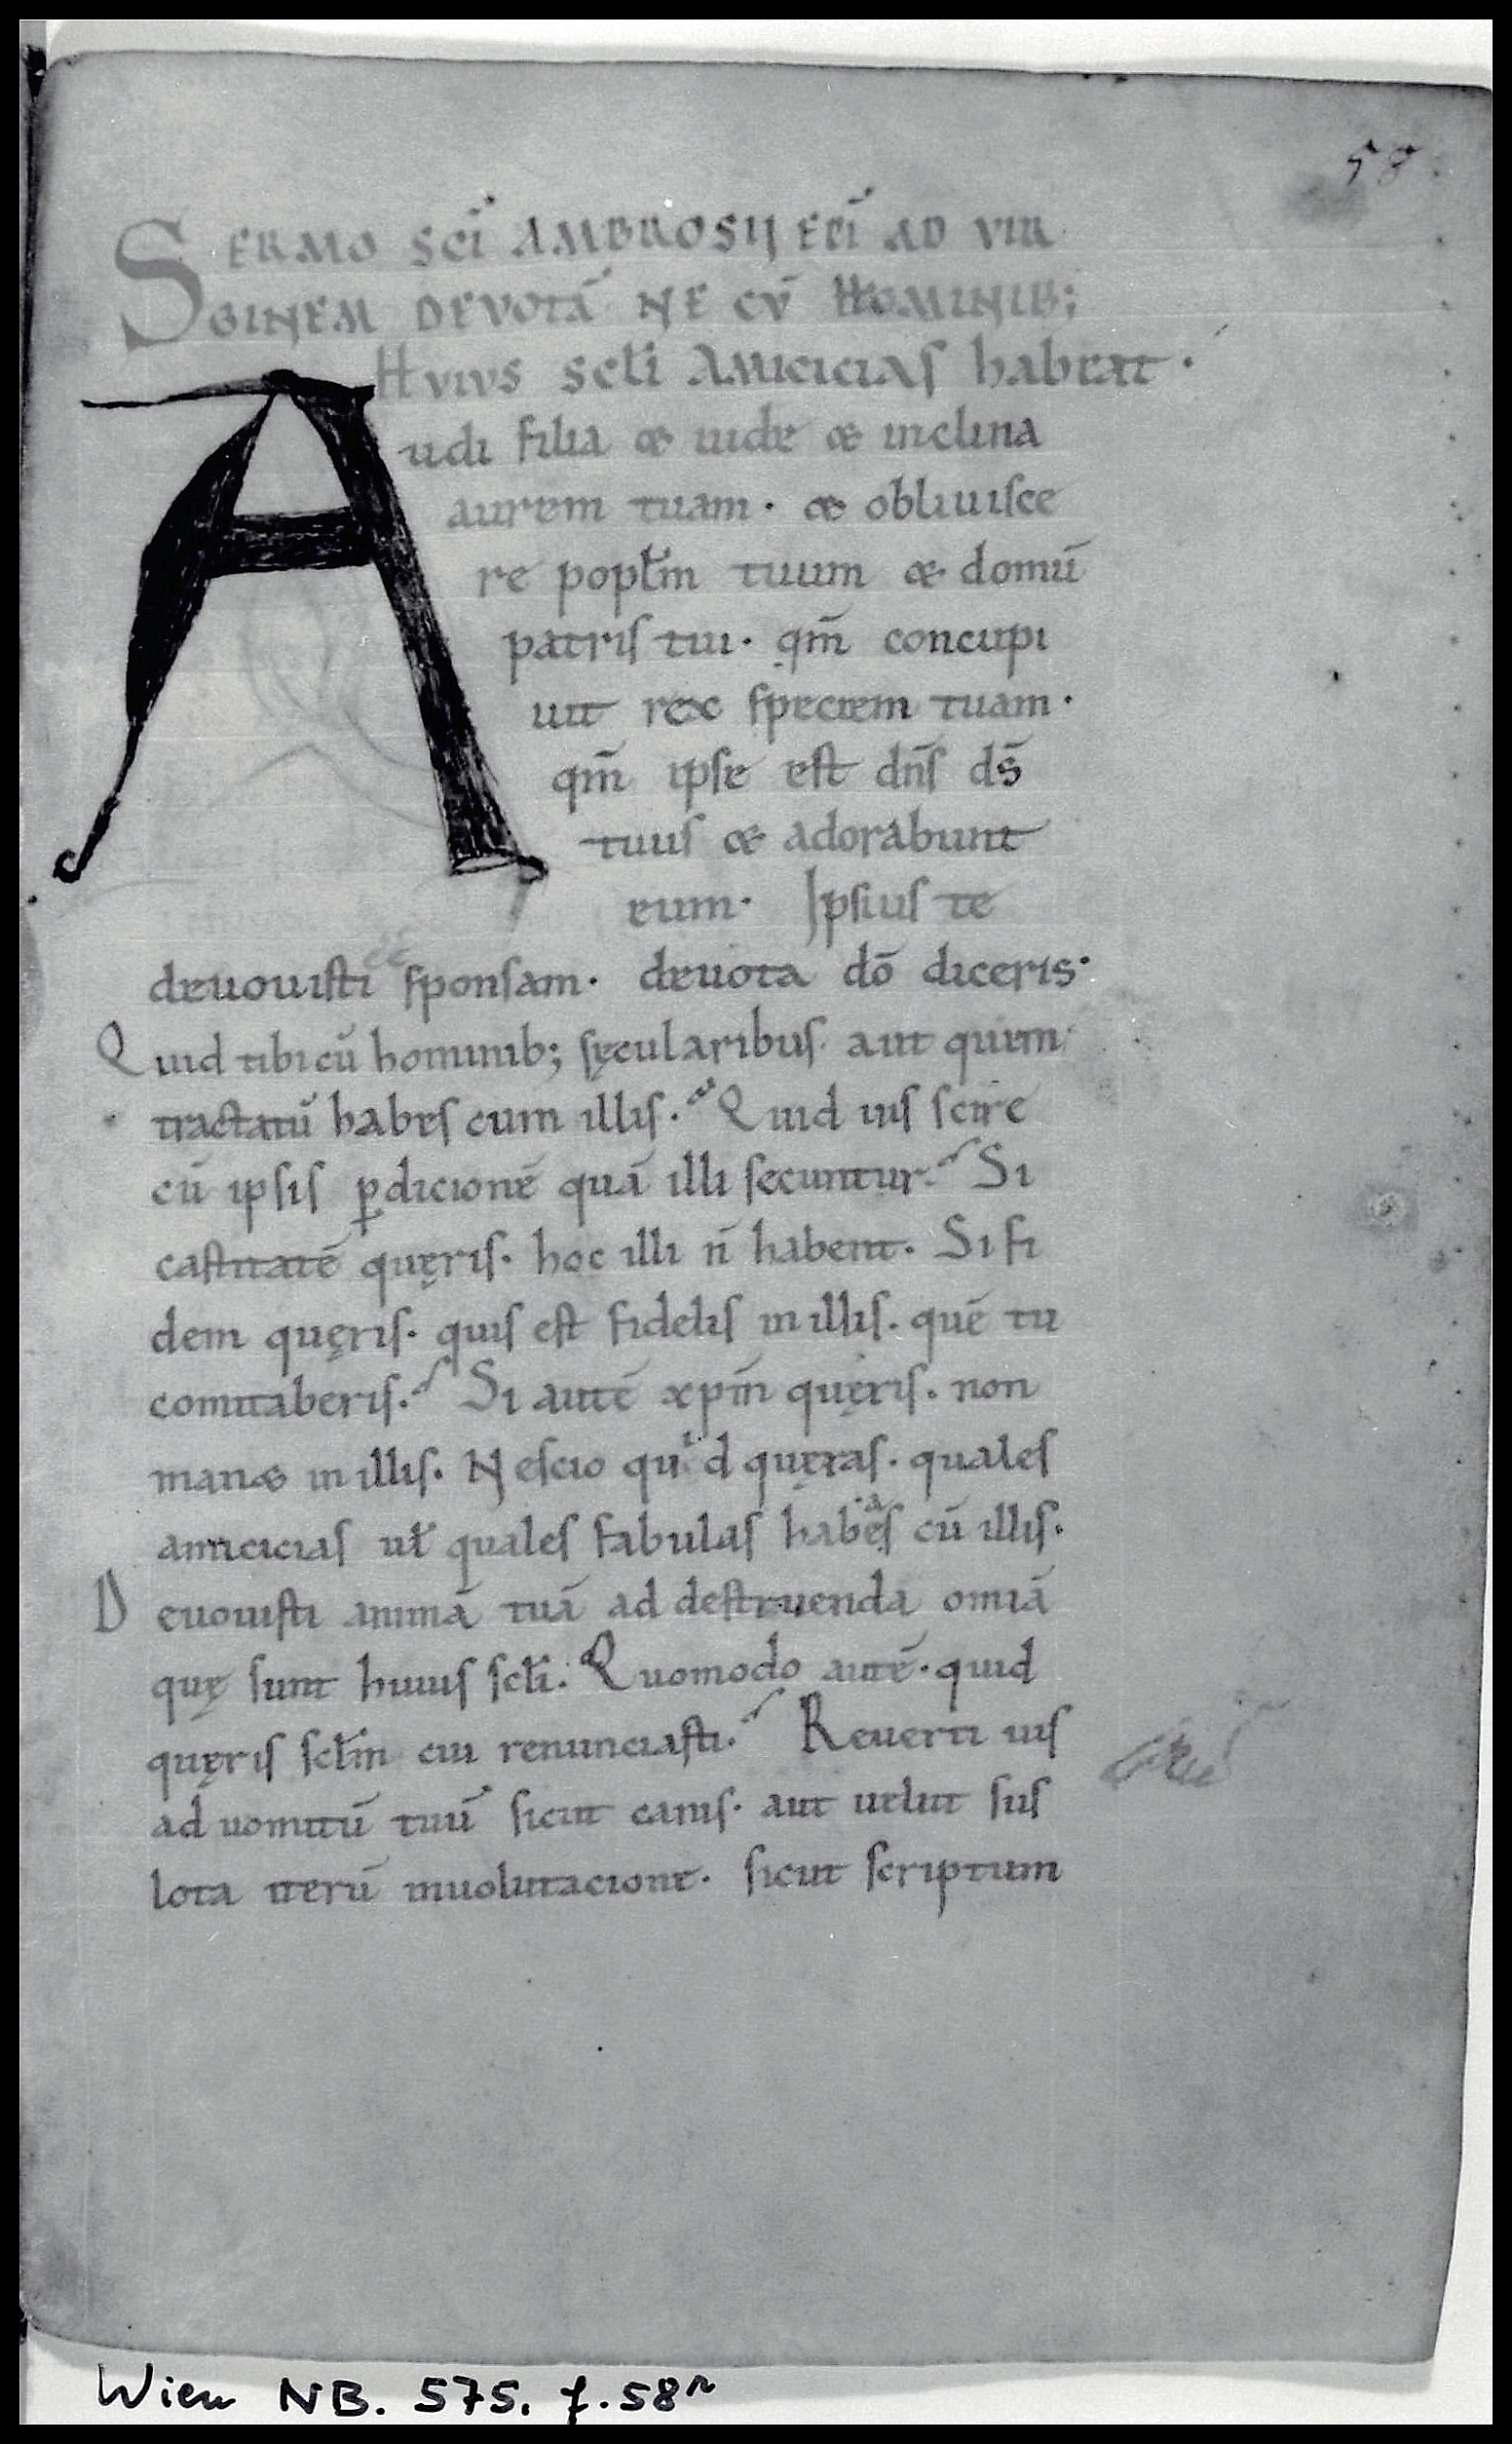 58
SERMO SCI AMBROSIJ EPI AD VIR
GINEM DEVOTĀ NE CV̄ HOMINIB;
HVIVS SCŁI AMICICIAS habeat ·
Audi filia & uide & inclina
aurem tuam · & obliuisce
re popłm tuum & domū
patris tui · qm̄ concupi
uit rex speciem tuam ·
qm̄ ipse est dn̄s ds̄
tuus & adorabunt
eum · Ipsius te
deuouisti sponsam · deuota dō diceris ·
Quid tibi cū hominib; sęcularibus · aut quem
tractatū habes cum illis · Quid uis scire
cū ipsis ꝑdicionē quā illi secuntur · Si
castitatē quęris · hoc illi n̄ habent · Si fi
dem quęris · quis est fidelis in illis · quē tu
comitaberis · Si autē xpm̄ quęris · non
man& in illis · Nescio quid quęras · quales
amicicias uł quales fabulas habeas cū illis ·
Deuouisti animā tuā ad destruenda omīa
quę sunt huius scłi · Quomodo autē · quid
quęris scłm cui renunciasti · Reuerti uis
ad uomitū tuū sicut canis · aut uelut sus
lota iterū inuolutacione · sicut scriptum
Wien NB. 575. f. 58r